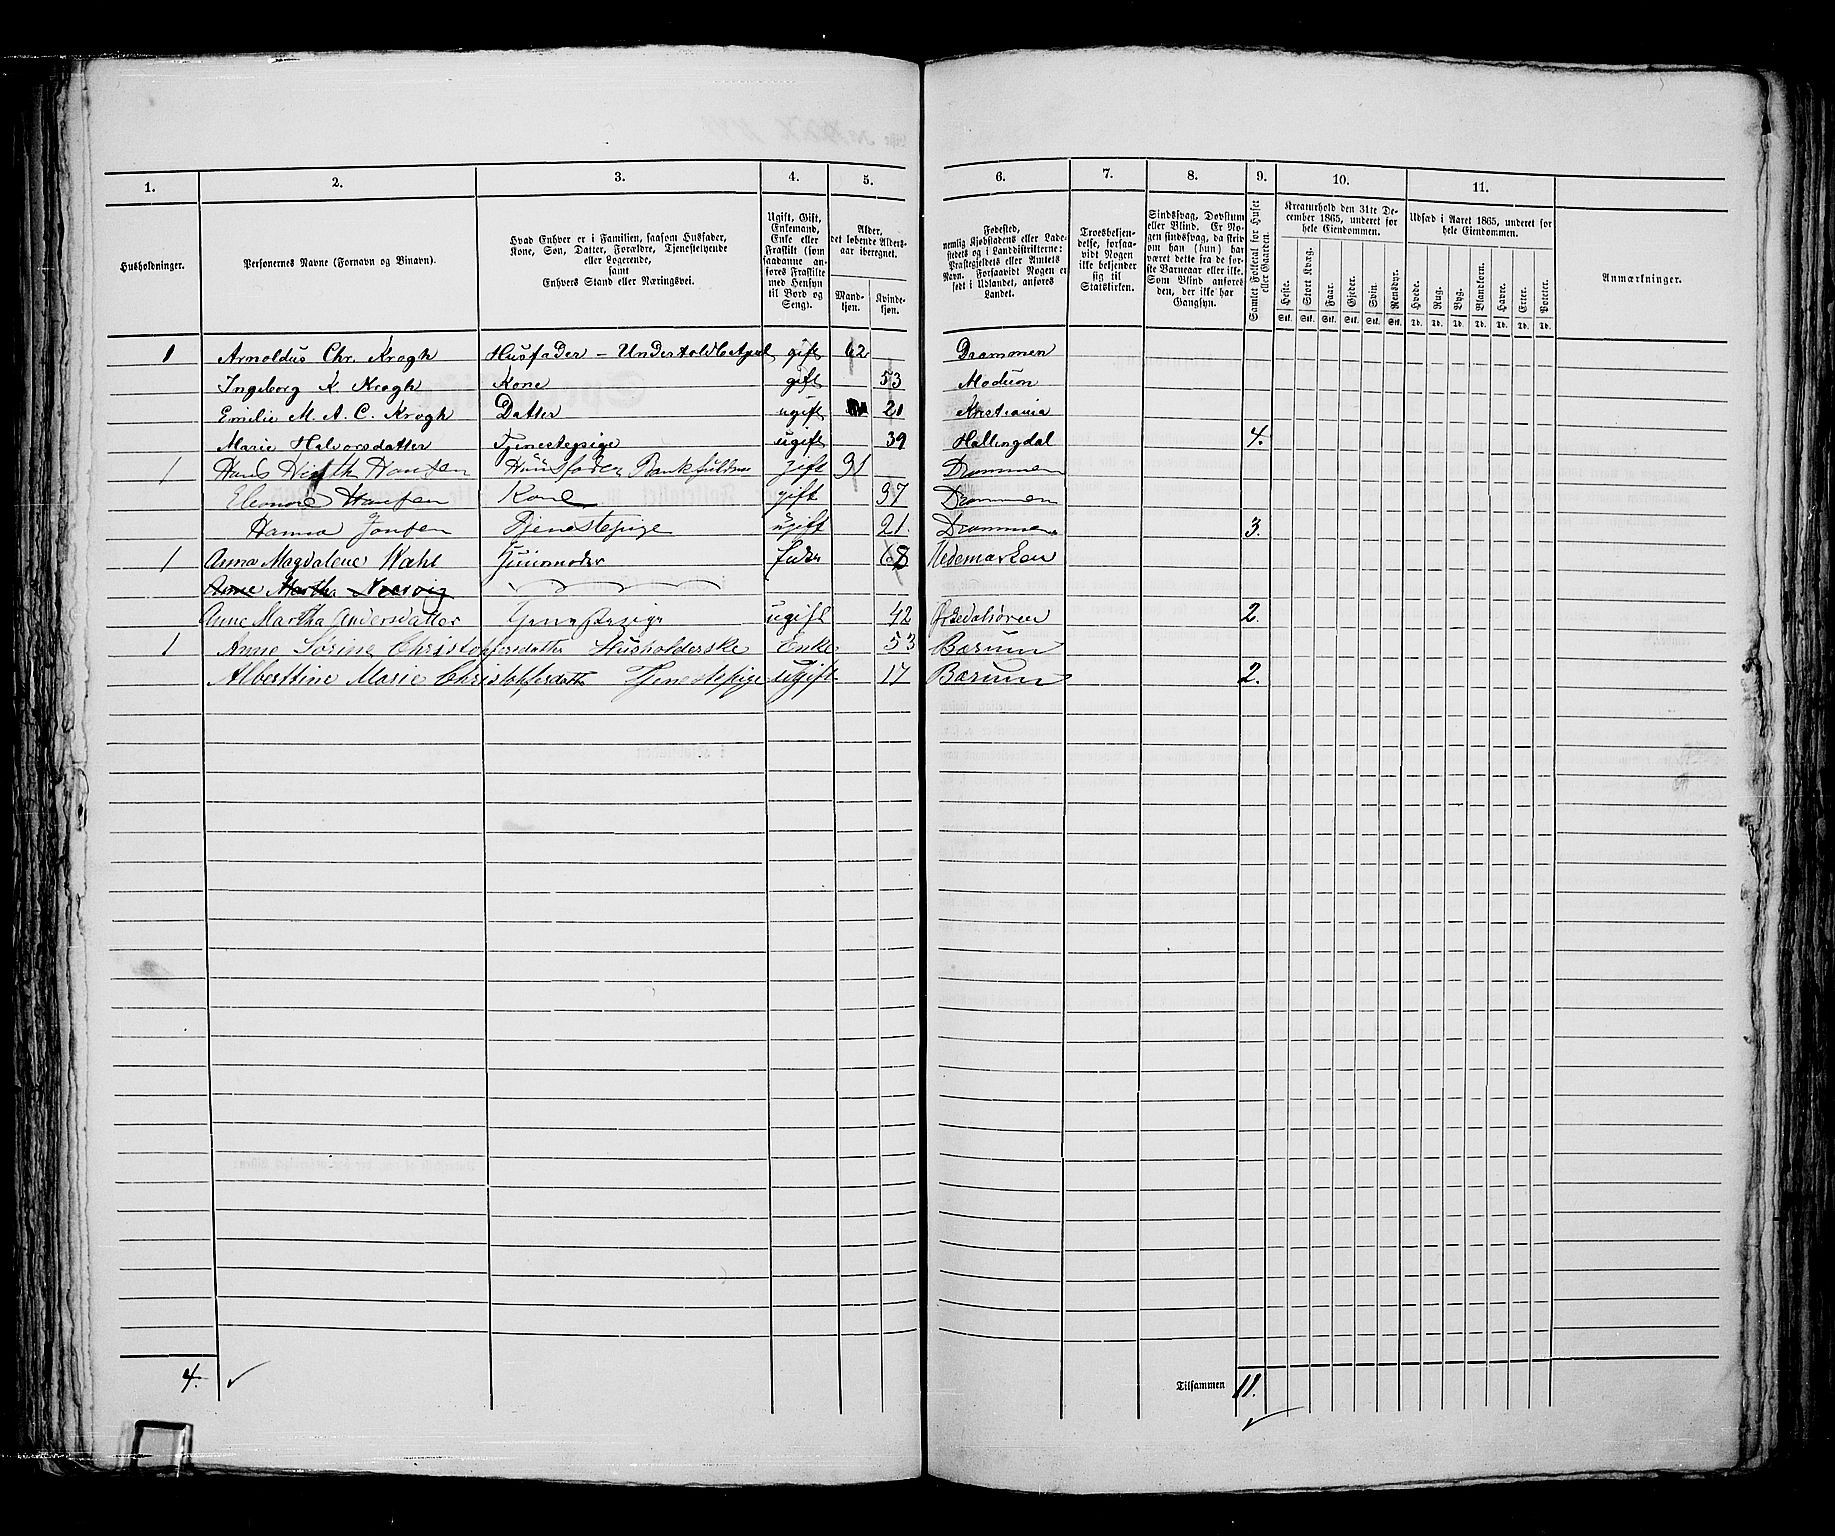 1. 2. 3. 4. 5. 6. 7. 8. 9. 10. 11.
Husholdninger.
Personernes Navne (Fornavn og Binavn).
Hvad Enhver er i Familien, saasom Husfader,
Kone, Søn, Datter, Forældre, Tjenestetyende
eller Logerende,
samt
Enhvers Stand eller Næringsvei.
Ugift, Gift,
Enkemand,
Enke eller
Fraskilt (som
saadanne an-
føres Fraskilte
med Hensyn
til Bord og
Seng).
Alder,
det løbende Alders-
aar iberegnet.
Mand-
kjøn.
Kvinde-
kjøn.
Fødested,
nemlig Kjøbstadens eller Lade-
stedets og i Landdistrikterne:
Præstegjeldets eller Amtets
Navn. Forsaavidt Nogen er
født i Udlandet, anføres
Landet.
Troesbekjen-
delse, forsaa-
vidt Nogen
ikke bekjender
sig til
Statskirken.
Sindssvag, Døvstum
eller Blind. Er No-
gen sindssvag, da skriv
om han (hun) har
været dette fra de før-
ste Barneaar eller ikke.
Som Blind anføres
den, der ikke har
Gangsyn.
Samlet Folketal for Huset
eller Gaarden.
Kreaturhold den 31te De-
cember 1865, underet for
hele Eiendommen.
Heste. Stort Kvæg. Faar. Gjeder. Svin. Rensdyr.
Stk. Stk. Stk. Stk. Stk. Stk.
Udsæd i Aaret 1865, underet for
hele Eiendommen.
Hvede. Rug. Byg. Blandkorn. Havre. Erter. Poteter.
Td. Td. Td. Td. Td. Td. Td.
Anmærkninger.
1 Arnoldus Chr. Krogh Husfader - gift 62 Drammen
Ingeborg K Krogh Kone gift 53 Modum
Emilie M. A. C. Krogh Datter ugift 21 Kristiania
Marie Halvorsdatter Tjenestepige ugift 39 Hallingdal 4.
1 Hans Hansen Huusfader gift 31 Drammen
Eleonore Hansen Kone gift 37 Drammen
Hanna Jonsen Tjenestepige ugift 21. Drammen 3.
1 Anna Magdalene Wahl 68 Hedemarken
Anne Martha
Anne Martha Andersdatter ugift 42 2.
1 Anne Sørine Christoffersdatter Husholderske Enke 53 Bærum
Alberttine Marie Christoffersdatt Tjenestepige ugift 17 Bærum 2.
4.
Tilsammen 11.